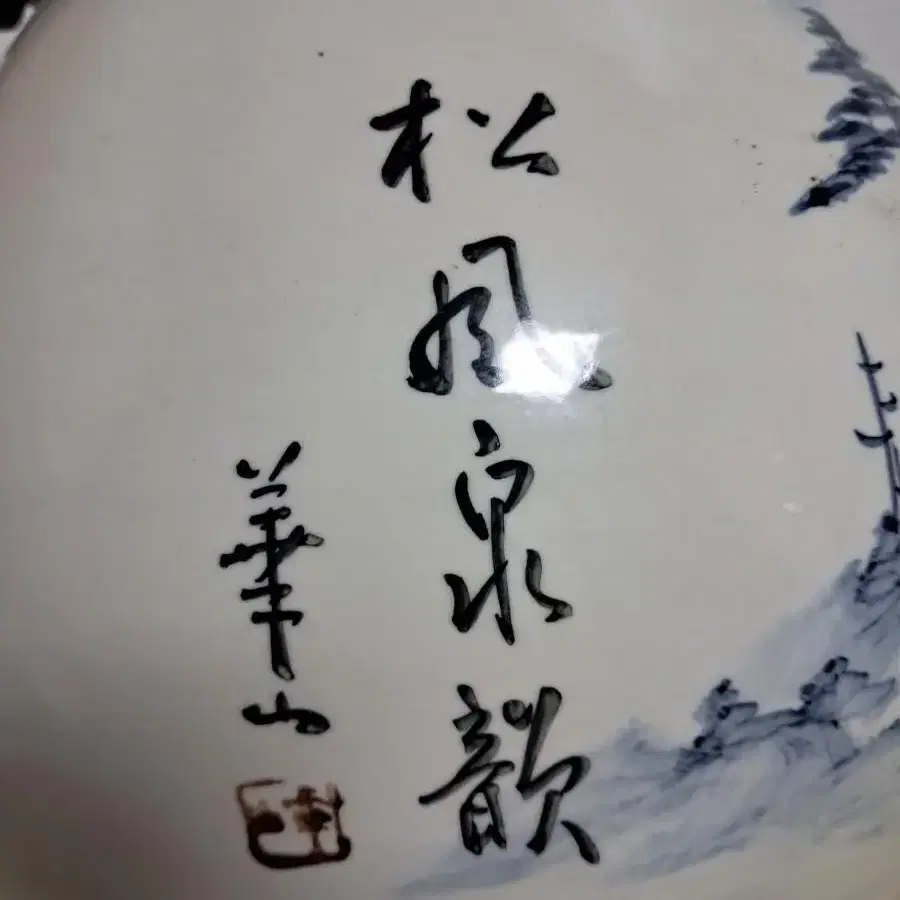 松風泉韻
華山